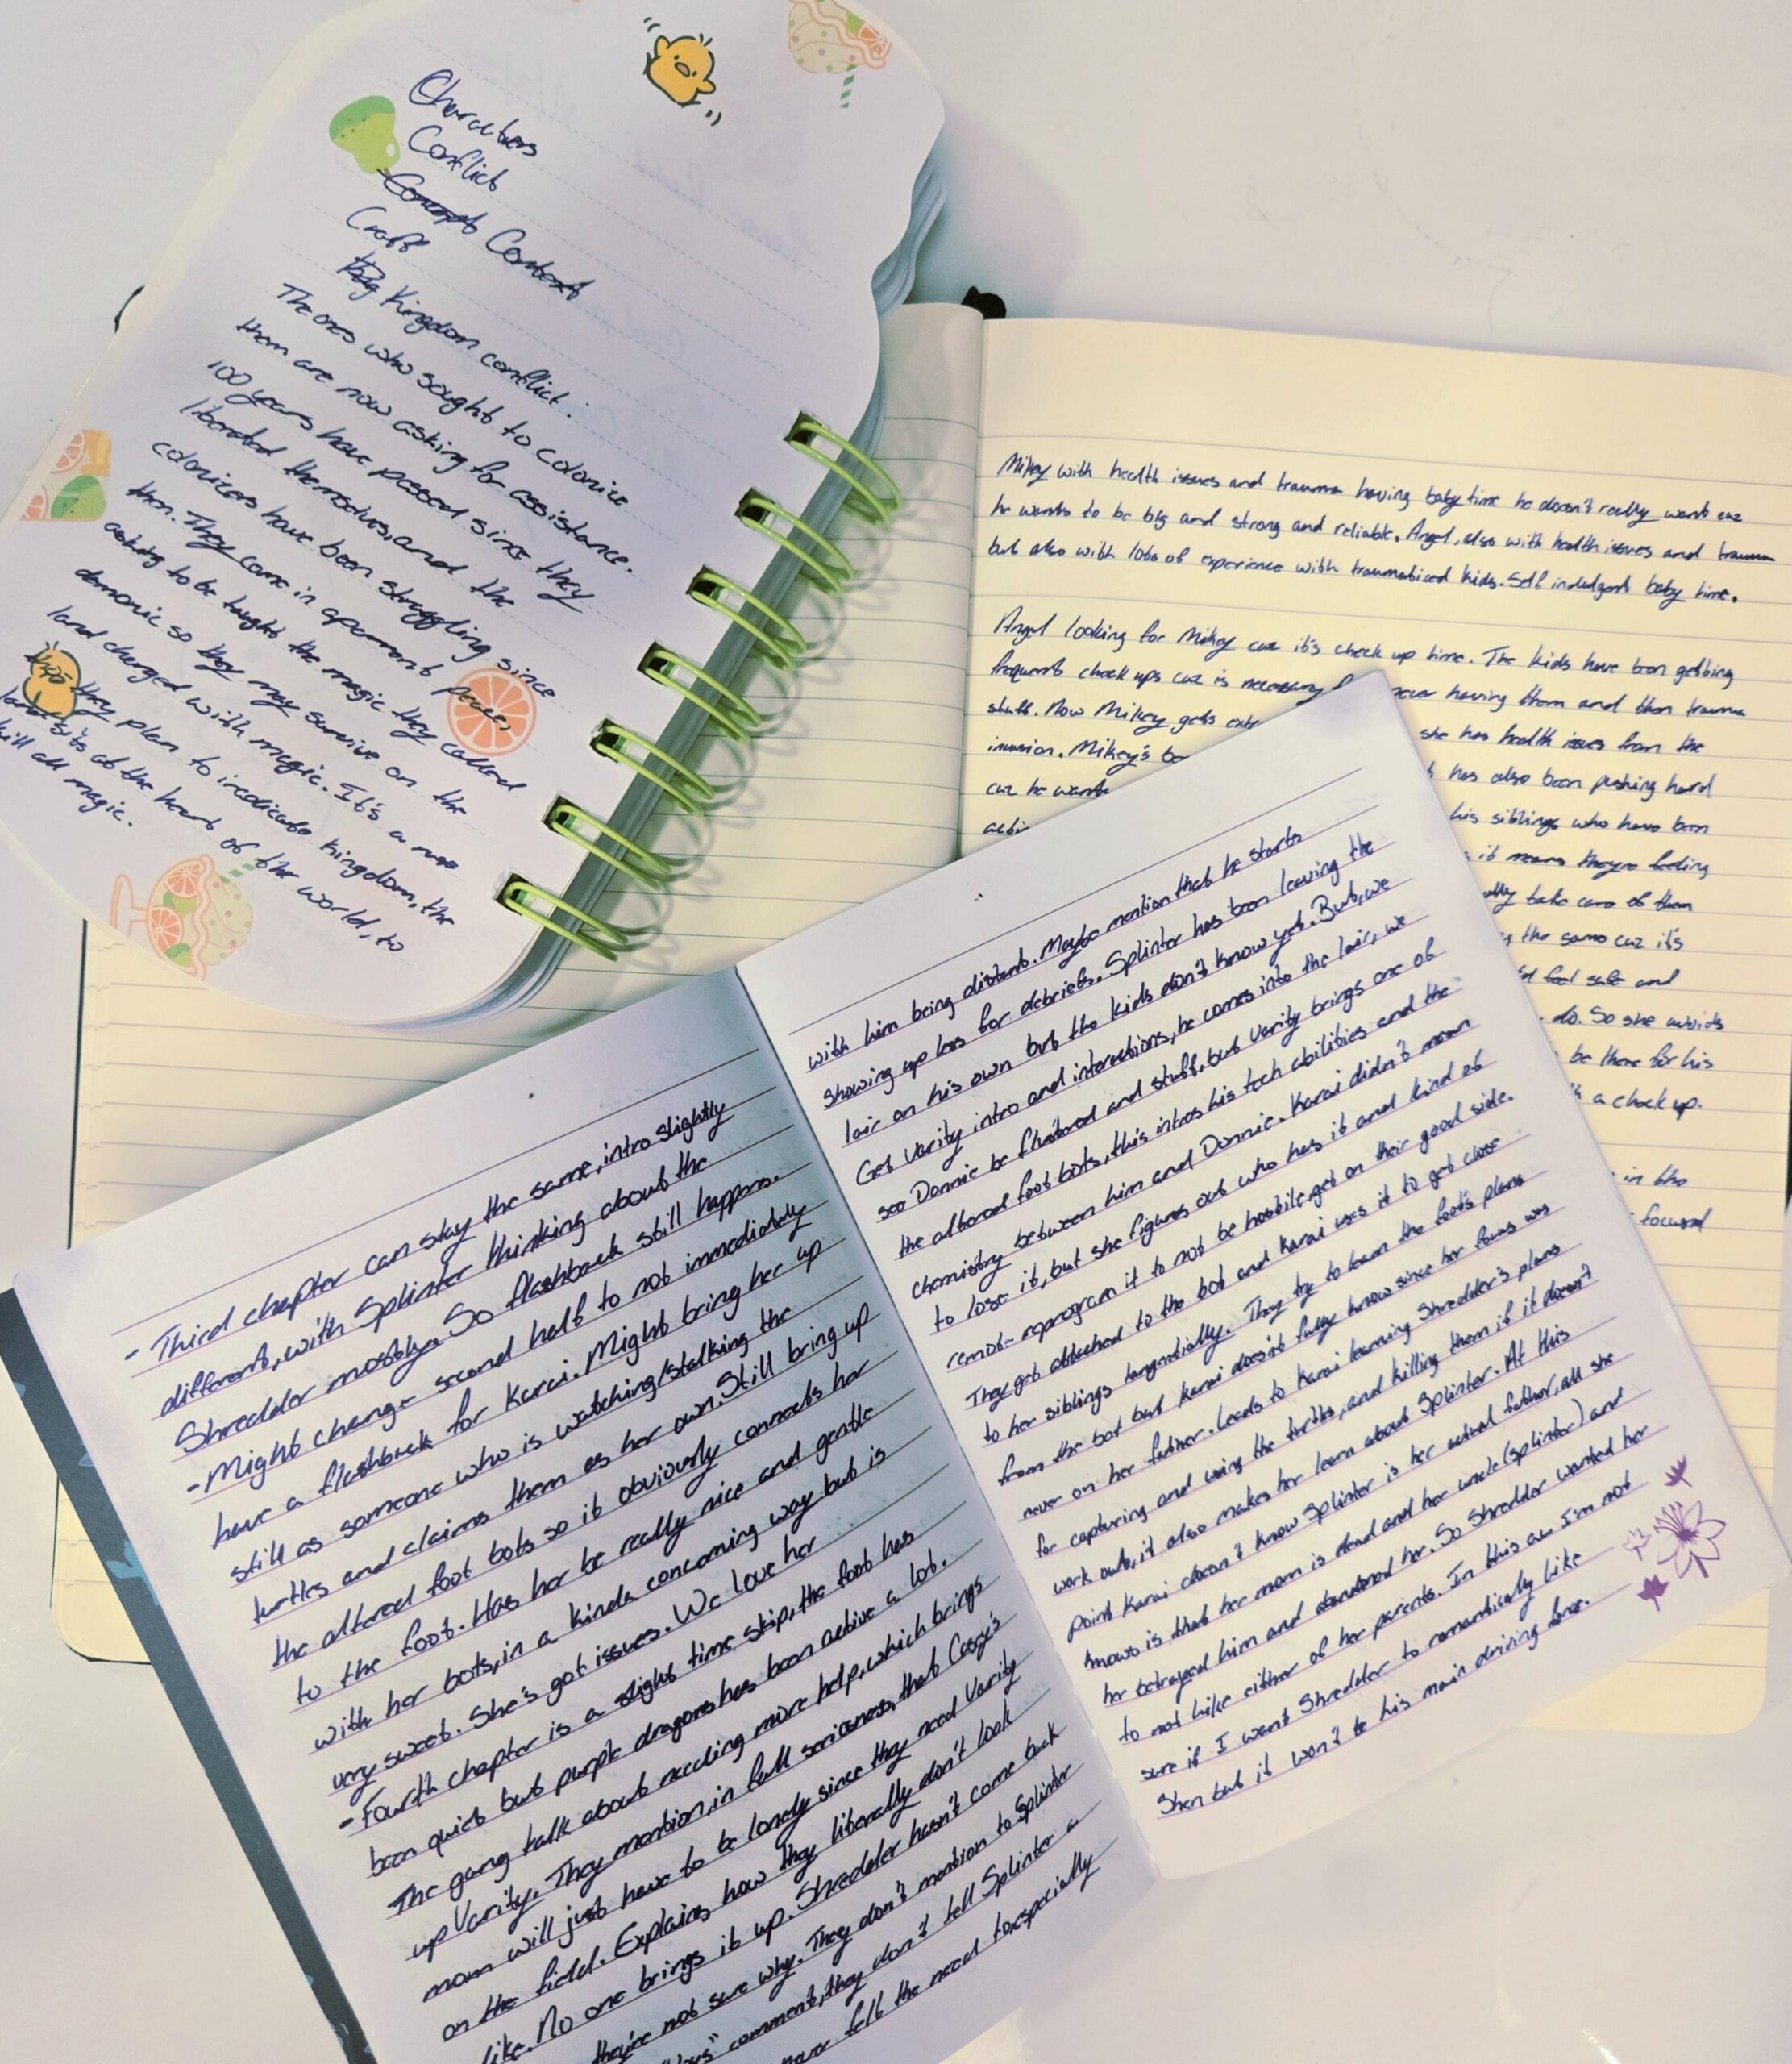 Characters
Conflict
Context
Craft
Kingdom conflict:
The ones who sought to colonize
them are now asking for assistance.
100 years have passed since they
liberated themselves, and the
colonizers have been struggling since
then. They come in apparent peace,
asking to be taught the magic they called
demonic so they may survive on the
land charged with magic. It's a ruse
they plan to iredicate kingdom, the
sits at the heart of the world, to
kill all magic.
Mikey with health issues and trauma having baby time he doesn't really want cuz
he wants to be big and strong and reliable. Angel, also with health issues and trauma
but also with lots of experience with traumatized kids. Self indulgent baby time.
Angel looking for Mikey cuz it's check up time. The kids have been getting
frequent check ups cuz is necessary never having them and then trauma
stuff. Now Mikey gets she has health issues from the
invasion. Mikey's has also been pushing hard
cuz he wants his siblings who have been
it means theyre feeling
take care of them
the same cuz it's
feel safe and
do. So she avoids
be there for his
a check up.
in the
focused
- Third chapter can stay the same, intro slightly
different, with Splinter thinking about the
Shredder mostly. So flashback still happens.
- Might change second half to not immediately
have a flashback for Karai. Might bring her up
still as someone who is watching/stalking the
turtles and claims them as her own. Still bring up
the altered foot bots so it obviously connects her
to the foot. Has her be really nice and gentle
with her bots, in a kinda concerning way but is
very sweet. She's got issues. We love her
- Fourth chapter is a slight time skip, the foot has
been quiet but purple dragons has been active a lot.
The gang talk about needing more help, which brings
up Varity. They mention, in full seriousness, that Casey's
mom will just have to be lonely since they need Varity
on the field. Explains how they literally don't look
like. No one brings it up. Shredder hasn't come back
they're not sure why. They don't mention to Splinter
comment, they don't tell Splinter a
never felt the need to, especially
with him being distant. Maybe mention that he starts
showing up less for debriefs. Splinter has been leaving the
lair on his own but the kids don't know yet. But, we
Get Varity intro and interactions, he comes into the lair, we
see Donnie be flustered and stuff, but Varity brings one of
the altered foot bots, this intros his tech abilities and the
chemistry between him and Donnie. Karai didn't mean
to lose it, but she figures out who has it and kind of
remot-reprogram it to not be hostile, get on their good side.
They get attached to the bot and Karai uses it to get close
to her siblings tangentially. They try to learn the foot's plans
from the bot but Karai doesn't fully know since her focus was
never on her father. Leads to Karai learning Shredder's plans
for capturing and using the turtles, and killing them if it doesn't
work out, it also makes her learn about Splinter. At this
point Karai doesn't know Splinter is her actual father, all she
knows is that her mom is dead and her uncle (splinter) and
her betrayed him and abandoned her. So Shredder wanted her
to not like either of her parents. In this au I'm not
sure if I want Shredder to romantically like
Shen but it won't be his main driving force.